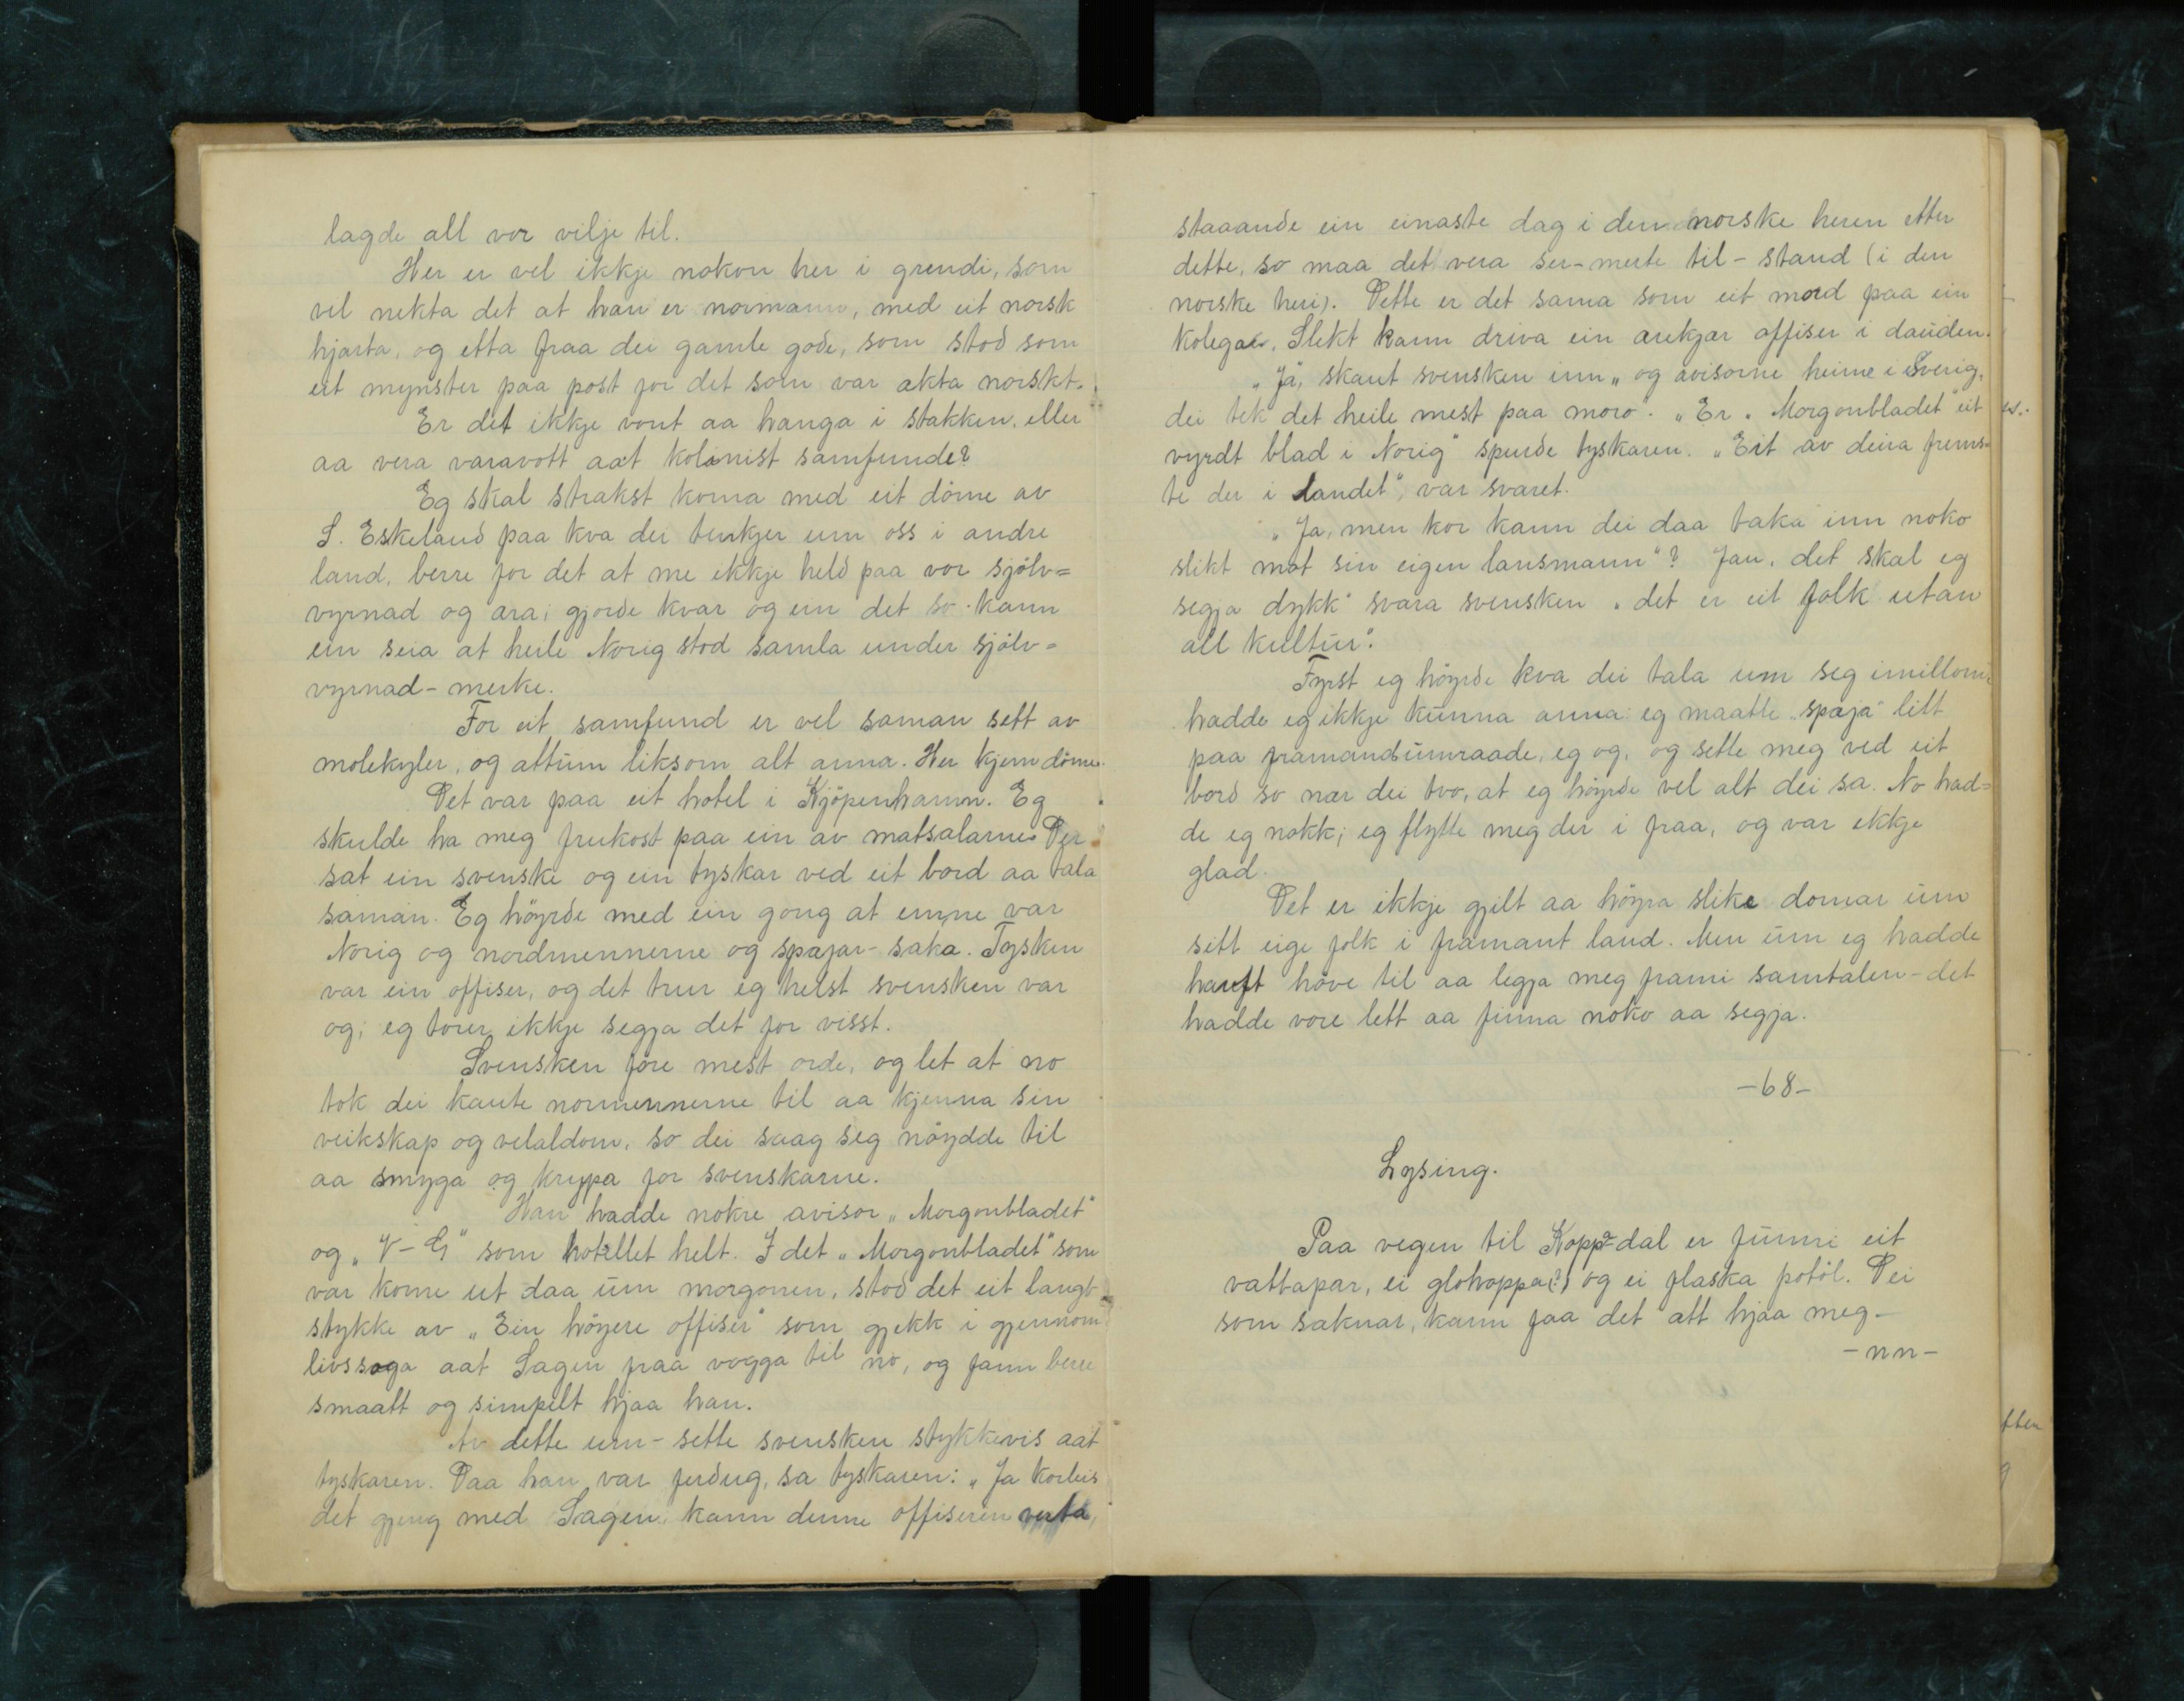 lagde all vor vilje til.
Her er vel ikkje nokon her i grendi, som
vil nekta det at han er normann, med eit norsk
hjarta, og etta fraa dei gamle gode, som stod som
eit mynster paa post for det som var ækta norskt.
Er det ikkje vont aa hanga i stakken, eller
aa vera varavott aat kolonist samfunde?
Eg skal strakst koma med eit döme av
L. Eskeland paa kva dei tenkjer um oss i andre
land, berre for det at me ikkje held paa vor sjölv=
vyrnad og æra; gjorde kvar og ein det so kann
ein seia at heile Norig stod samla under sjölv=
vyrnad-merke.
For eit samfund er vel saman sett av
molekyler, og attum liksom alt anna. Her kjem döme.
Det var paa eit hotel i Kjöpenhamn. Eg
skulde ha meg frukost paa ein av matsalarne. Der
sat ein svenske og ein tyskar ved eit bord aa tala
saman. Eg höyrde med ein gong at emne var
Norig og nordmennerne og spajar-saka. Tysken
var ein offiser, og det trur eg helst svensken var
og; eg torer ikkje segja det for visst.
Svensken före mest orde, og let at no
tok dei kaute normennerne til aa kjenna sin
veikskap og velaldom, so dei saag seg nöydde til
aa smyga og krypa for svenskarne.
Han hadde nokre avisor „Morgonbladet"
og „V-G" som hotellet helt. I det „Morgonbladet" som
var kome ut daa um morgonen, stod det eit langt
stykke av „Ein höyere offiser" som gjekk i gjennom
livssoga aat Sagen fraa vogga til no, og fann berre
smaatt og simpelt hjaa han.
Av dette um-sette svensken stykkevis aat
tyskaren. Daa han var ferdug, sa tyskaren: „Ja korleis
det gjeng med Sagen, kann denne offiseren verta
staaande ein einaste dag i den norske heren etter
dette, so maa det vera ser-merte til-stand (i den
norske heri). Dette er det sama som eit mord paa ein
kolega. Slikt kann driva ein ærekjær offiser i dauden.
„Ja, skaut svensken inn „og avisorne heime i Sverig,
dei tek det heile mest paa moro". „Er „Morgonbladet" eit
vyrdt blad i Norig" spurde tyskaren. „Eit av deira frems=
te der i landet", var svaret.
„Ja, men kor kann dei daa taka inn noko
slikt mot sin eigen lansmann"? Jau, det skal eg
segja dykk" svara svensken „det er eit folk utan
all kultur".
Fyrst eg höyrde kva dei tala um seg imillom
hadde eg ikkje kunna anna: eg maatte „spaja" litt
paa framandsumraade, eg og, og sette meg ved eit
bord so nær dei tvo, at eg höyrde vel alt dei sa. No had=
de eg nokk; eg flytte meg der i fraa, og var ikkje
glad.
Det er ikkje gjilt aa höyra slike domar um
sitt eige folk i framant land. Men um eg hadde
havft höve til aa legja meg frami samtalen - det
hadde vore lett aa finna noko aa segja.
-68-
Lysing.
Paa vegen til Kopp-dal er funne eit
vattapar, ei glohoppa(?) og ei flaska potöl. Dei
som saknar, kann faa det att hjaa meg.
-nn-